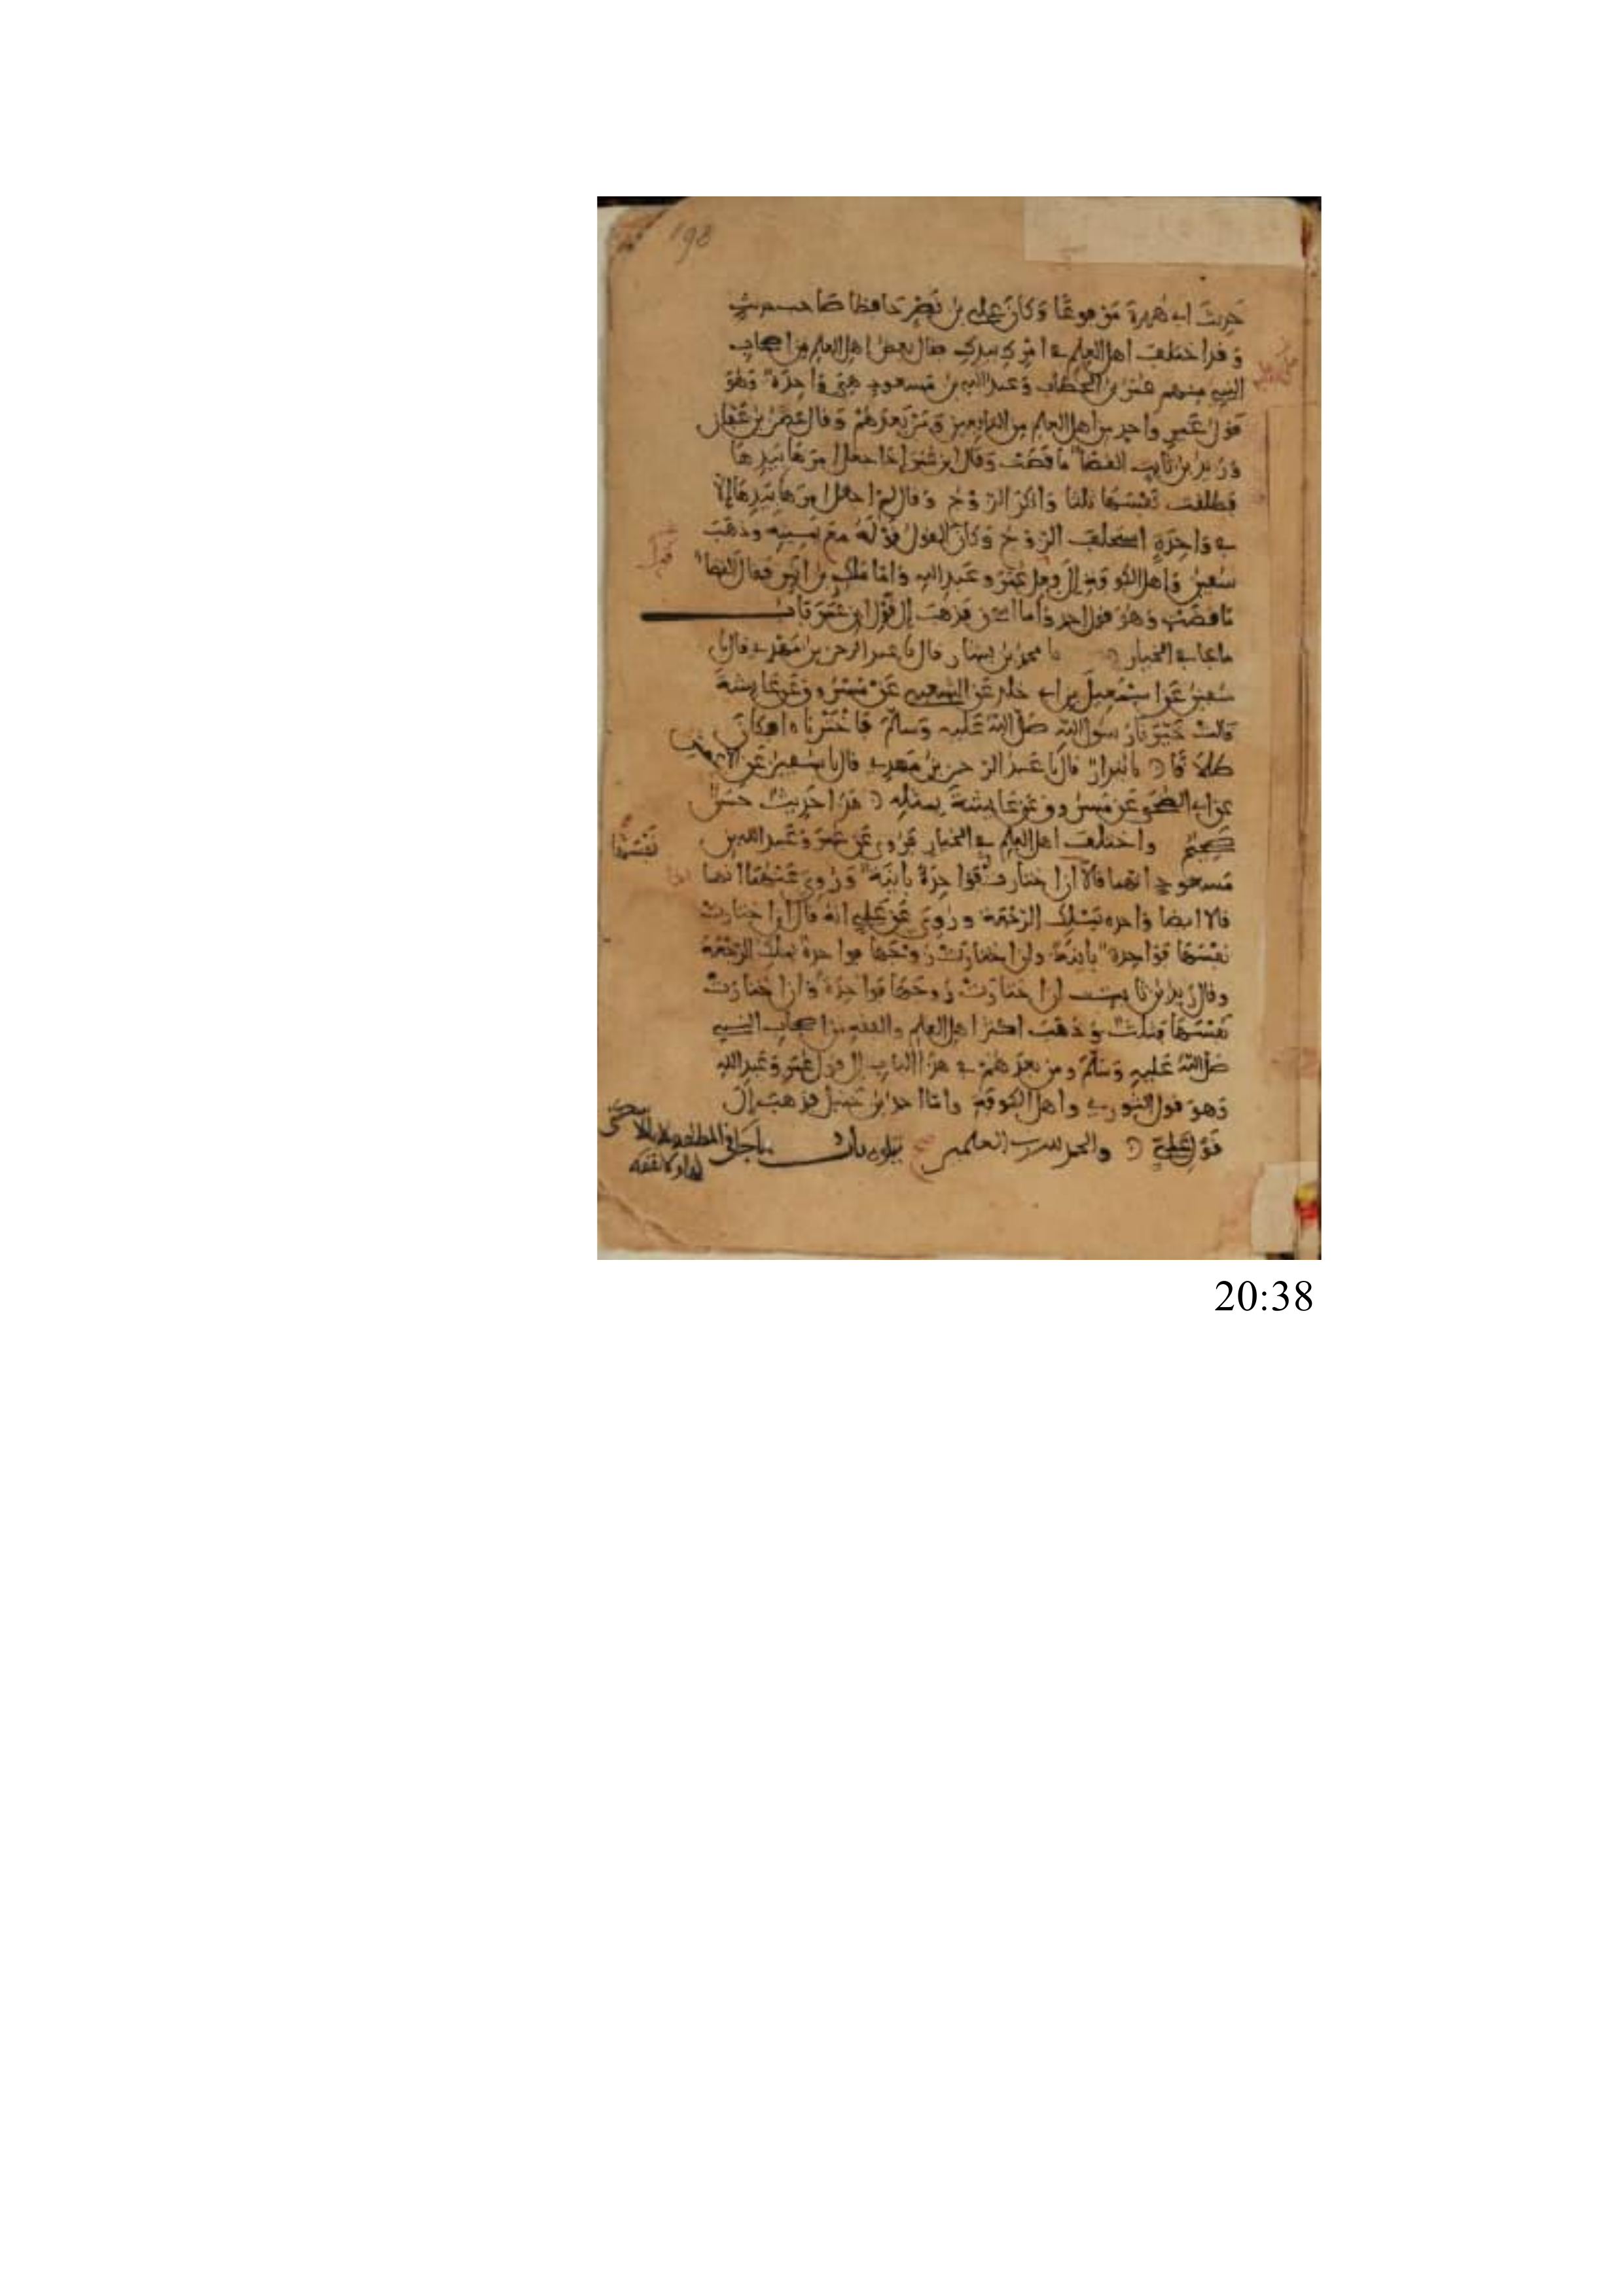 198
حديث ابي هريرة موقوفا وكان علي بن نصر حافظا صاحب حديث
وقد اختلف اهل العلم في امرك بيدك فقال بعض اهل العلم من اصحاب
النبي منهم عمر بن الخطاب وعبد الله بن مسعود هي واحدة وهو
قول غير واحد من اهل العلم من التابعين ومن بعدهم وقال عثمن بن عفان
وزيد بن ثابت القضا ما قضت وقال ابن عمر اذا جعل امرها بيدها
فطلقت نفسها ثلثا وانكر الزوج وقال لم اجعل امرها بيدها الا
في واحدة استحلف الزوج وكان القول قوله مع يمينه وذهب
سفين واهل الكوفة الى قول عمر وعبد الله واما ملك بن انس فقال القضا
ما قضت وهو قول احمد واما اسحق فذهب الى قول ابن عمر باب
ما جا في الخيار نا محمد بن بشار قال نا عبد الرحمن بن مهدي قال نا
سفين عن اسمعيل بن ابي خلد عن الشعبي عن مسروق عن عايشة
قالت خيرنا رسول الله صلى الله عليه وسلم فاخترناه افكان
طلاقا نا بندار قال نا عبد الرحمن بن مهدي قال نا سفين عن الاعمش
عن ابي الضحى عن مسروق عن عايشة بمثله هذا حديث حسن
صحيح واختلف اهل العلم في الخيار فروي عن عمر وعبد الله بن
نفسها
مسعود انهما قالا ان اختارت فواحدة باينة وروي عنهما انهما
قالا ايضا واحدة يملك الرجعة وروي عن علي انه قال ان اختارت
نفسها فواحدة باينة وان اختارت زوجها فواحدة يملك الرجعة
وقال زيد بن ثابت ان اختارت زوجها فواحدة وان اختارت
نفسها فثلث وذهب اكثر اهل العلم والفقه من اصحاب النبي
صلى الله عليه وسلم ومن بعدهم في هذا الباب الى قول عمر وعبد الله
وهو قول الثوري واهل الكوفة واما احمد بن حنبل فذهب الى
قول علي والحمد لله رب العلمين يتلوه باب ما جا في المطلقة ثلاثا لا سكنى
لها ولا نفقة
20:38